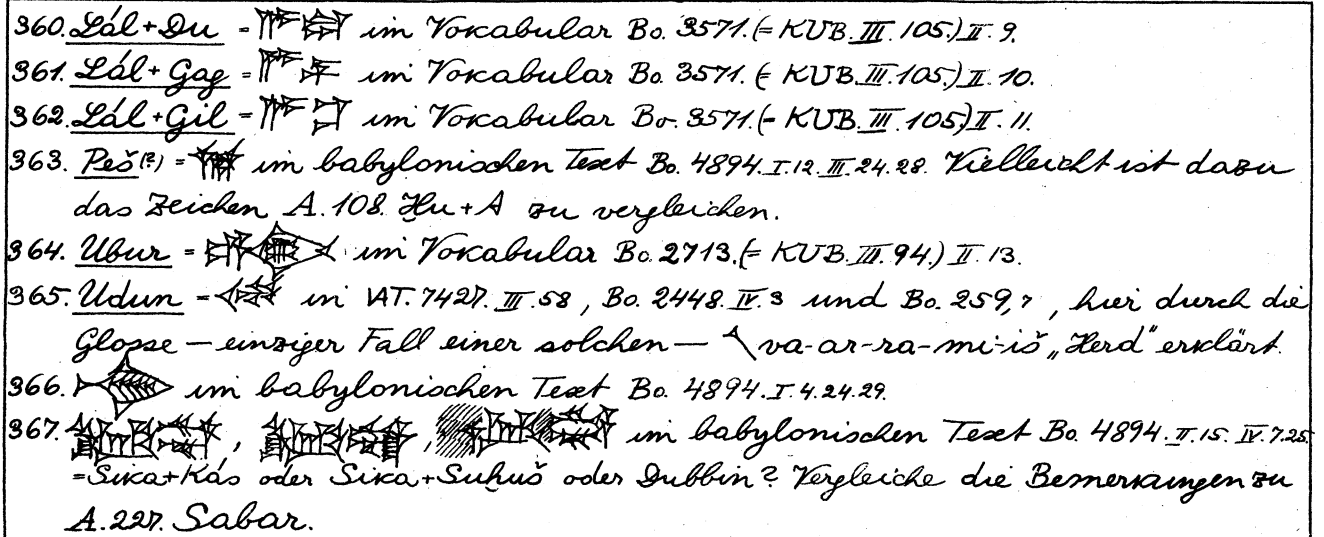 360. Lál+Du = 𒇲𒁺 im Vokabular Bo. 3571. (= KUB. III. 105.) II. 9.
361. Lál+Gag = 𒇲𒆕 im Vokabular Bo. 3571. (= KUB. III. 105.) II. 10.
362. Lál+Gil = 𒇲𒄀 im Vokabular Bo. 3571. (= KUB. III. 105) II. 11.
363. Peš(?) = im babylonischen Text Bo. 4894. I. 12. III. 24. 28. Vielleicht ist dazu
das Zeichen A. 108. Ḫu+A zu vergleichen.
364. Ubur = im Vokabular Bo. 2713. (= KUB. III. 94.) II. 13.
365. Udun = in VAT. 7427. III. 58, Bo. 2448. IV. 3 und Bo. 259, 7, hier durch die
Glosse — einziger Fall einer solchen — va-ar-ra-mi-iš „Herd" erklärt.
366. im babylonischen Text Bo. 4894. I. 4. 24. 29.
367. , , im babylonischen Text Bo. 4894. II. 15. IV. 7. 25.
= Sika+Kás oder Sika+Suḫuš oder Dubbin? Vergleiche die Bemerkungen zu
A. 227. Sabar.